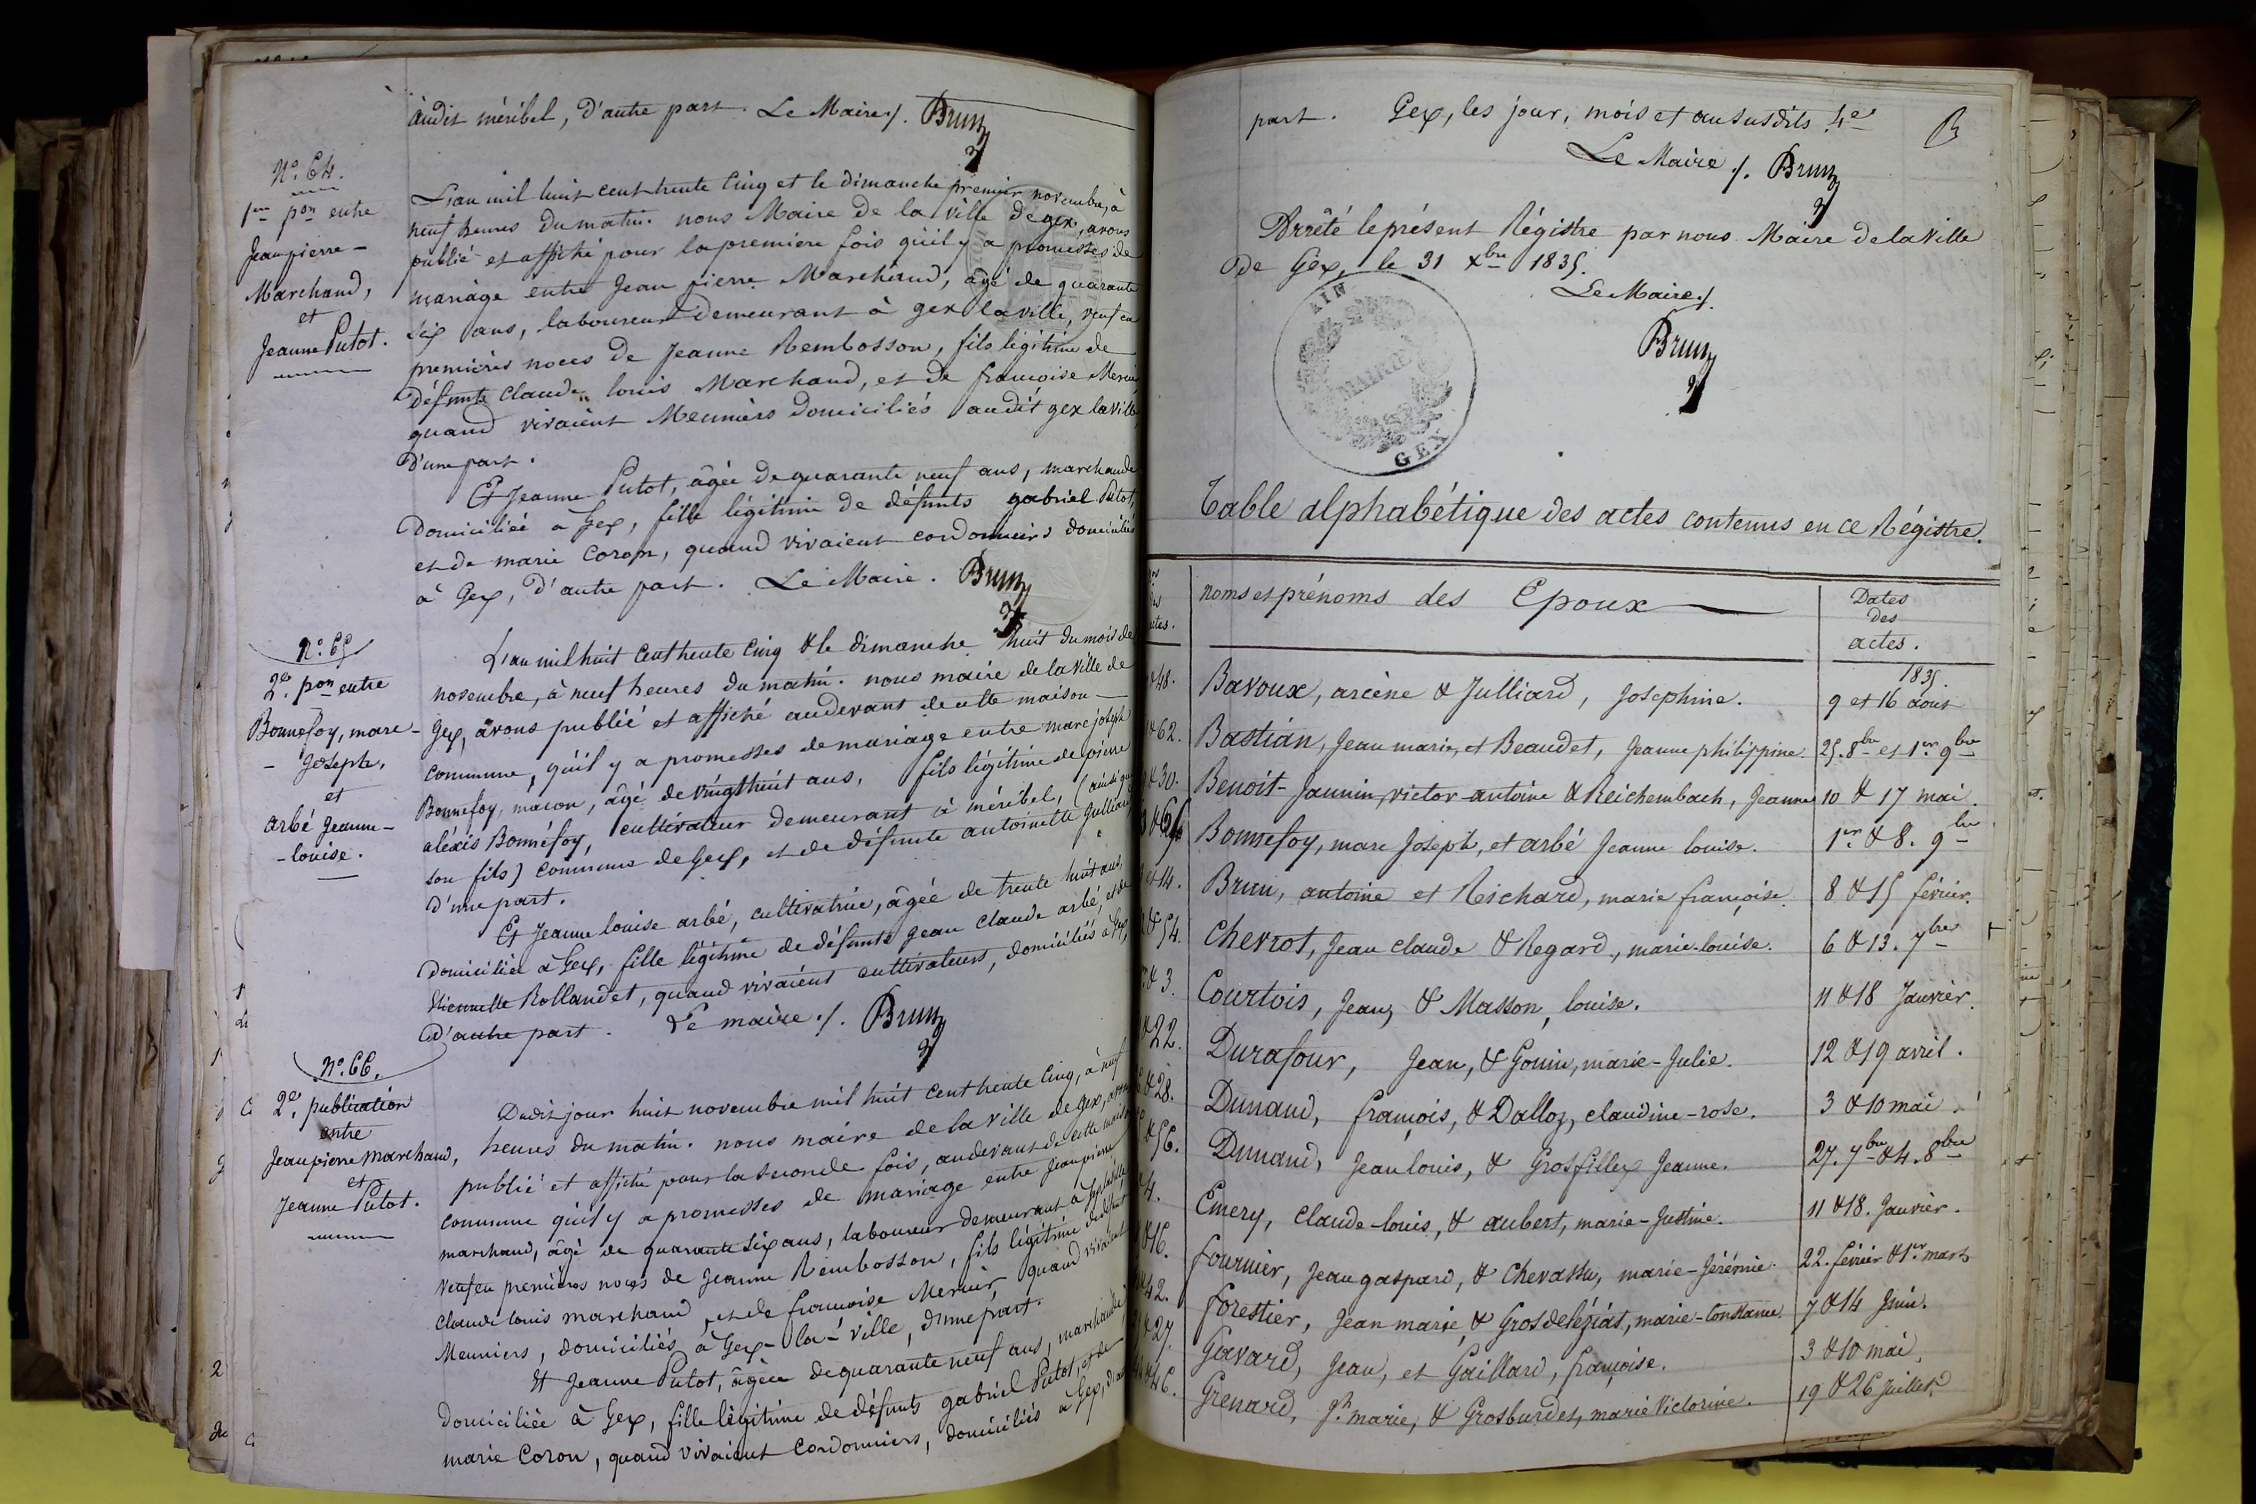 audit méribel, d'autre part. Le Maire /. Brun
N.° 64.
1ère pon entre
Jean pierre -
Marchand,
et
Jeanne Putot.
L'an mil huit cent trente cinq et le dimanche premier novembre, à
neuf heures du matin. nous Maire de la ville de gex, avons
publié et affiché pour la premiere fois qu'il y a promesses de
mariage entre Jean pierre Marchand, âgé de quarante
six ans, laboureur demeurant à gex la ville, veuf en
premières noces de Jeanne Rembosson, fils légitime de
défunts Claude louis Marchand, et de françoise Mercier,
quand vivaient Meuniers domiciliés audit gex la ville
d'une part.
Et Jeanne Putot, âgée de quarante neuf ans, marchande
domiciliée à Gex, fille légitime de défunts gabriel Putot,
et de marie Coron, quand vivaient cordonniers domiciliés
à Gex, d'autre part. Le Maire. Brun
N.° 65
2e. pon entre
Bonnefoy, marc -
- Joseph,
et
arbé Jeanne -
- louise.
L'an mil huit cent trente cinq & le dimanche huit du mois de
novembre, à neuf heures du matin. nous maire de la ville de
Gex, avons publié et affiché audevant de cette maison
commune, qu'il y a promesses de mariage entre marc joseph
Bonnefoy, macon, âgé de vingt huit ans, fils légitime de pierre
aléxis Bonnéfoy, cultivateur demeurant à méribel, (ainsi que
son fils) commune de Gex, et de défunte antoinette Julliard,
d'une part.
Et Jeanne louise arbé, cultivatrice, âgée de trente huit ans,
domiciliée à Gex, fille légitime de défunts jean claude arbé, et de
Etiennette Rollandet, quand vivaient cultivateurs, domiciliés à Gex,
d'autre part. Le maire /. Brun
N.° 66.
2e. publication
entre
Jean pierre Marchand,
et
Jeanne Putot.
Dudit jour huit novembre mil huit cent trente cinq, à neuf
heures du matin. nous maire de la ville de Gex, avons
publié et affiché pour la seconde fois, audevant de cette maison
commune qu'il y a promesses de mariage entre Jean pierre
marchand, âgé de quarante six ans, laboureur demeurant à Gex la ville
veuf en premières noces de Jeanne Rembosson, fils légitime de défunt
Claude louis marchand, et de françoise Mercier, quand vivaient
Meuniers, domiciliés à Gex-la-ville, d'une part.
Et Jeanne Putot, âgée de quarante neuf ans, marchande,
domiciliée à Gex, fille légitime de défunts gabriel Putot, et de
marie Coron, quand vivaient Cordonniers, domiciliés à Gex,
part. Gex, les jour, mois et an susdits
Le Maire /. Brun
Arrêté le présent Régistre par nous Maire de la Ville
de Gex, le 31 Xbre 1835.
Le Maire /.
AIN
MAIRIE
GEX
Brun
Table alphabétique des actes contenus en ce Régistre.
noms et prénoms des Epoux
Dates
des
actes.
1835.
48. Bavoux, arcène & Julliard, Josephine. 9 et 16 aout
62. Bastian, Jean marie, et Beaudet, Jeanne philippine. 25. 8bre et 1er 9bre
30. Benoit-Jannin, victor antoine & Reichembach, Jeanne 10 & 17 mai.
Bonnefoy, marc Joseph, et arbé Jeanne louise. 1er & 8. 9bre
et 14. Brun, antoine et Reichard, marie françoise. 8 & 15 février.
54. Chevrot, Jean claude & Regard, marie-louise. 6 & 13. 7bre
& 3. Courtois, Jean, & Masson, louise. 11 & 18 Janvier.
& 22. Durafour, Jean, & Gouin, marie-Julie. 12 & 19 avril.
& 28. Dunand, françois, & Dalloz, claudine-rose. 3 & 10 mai
& 56. Dunand, Jean louis, & Grosfilley Jeanne. 27. 7bre & 4. 8bre
4. Emery, claude-louis, & aubert, marie-Justine. 11 & 18. Janvier.
& 16. fournier, Jean gaspard, & Chevassu, marie-Jérémie. 22. février & 1er. mars
42. forestier, Jean marie, & Grosdelézias, marie-Constance. 7 & 14 Juin.
& 27. Gavard, Jean, et Gaillard, françoise. 3 & 10 mai.
& 46. Grenard, Jh. marie, & Grosburdet, marie Victorine. 19 & 26 Juillet